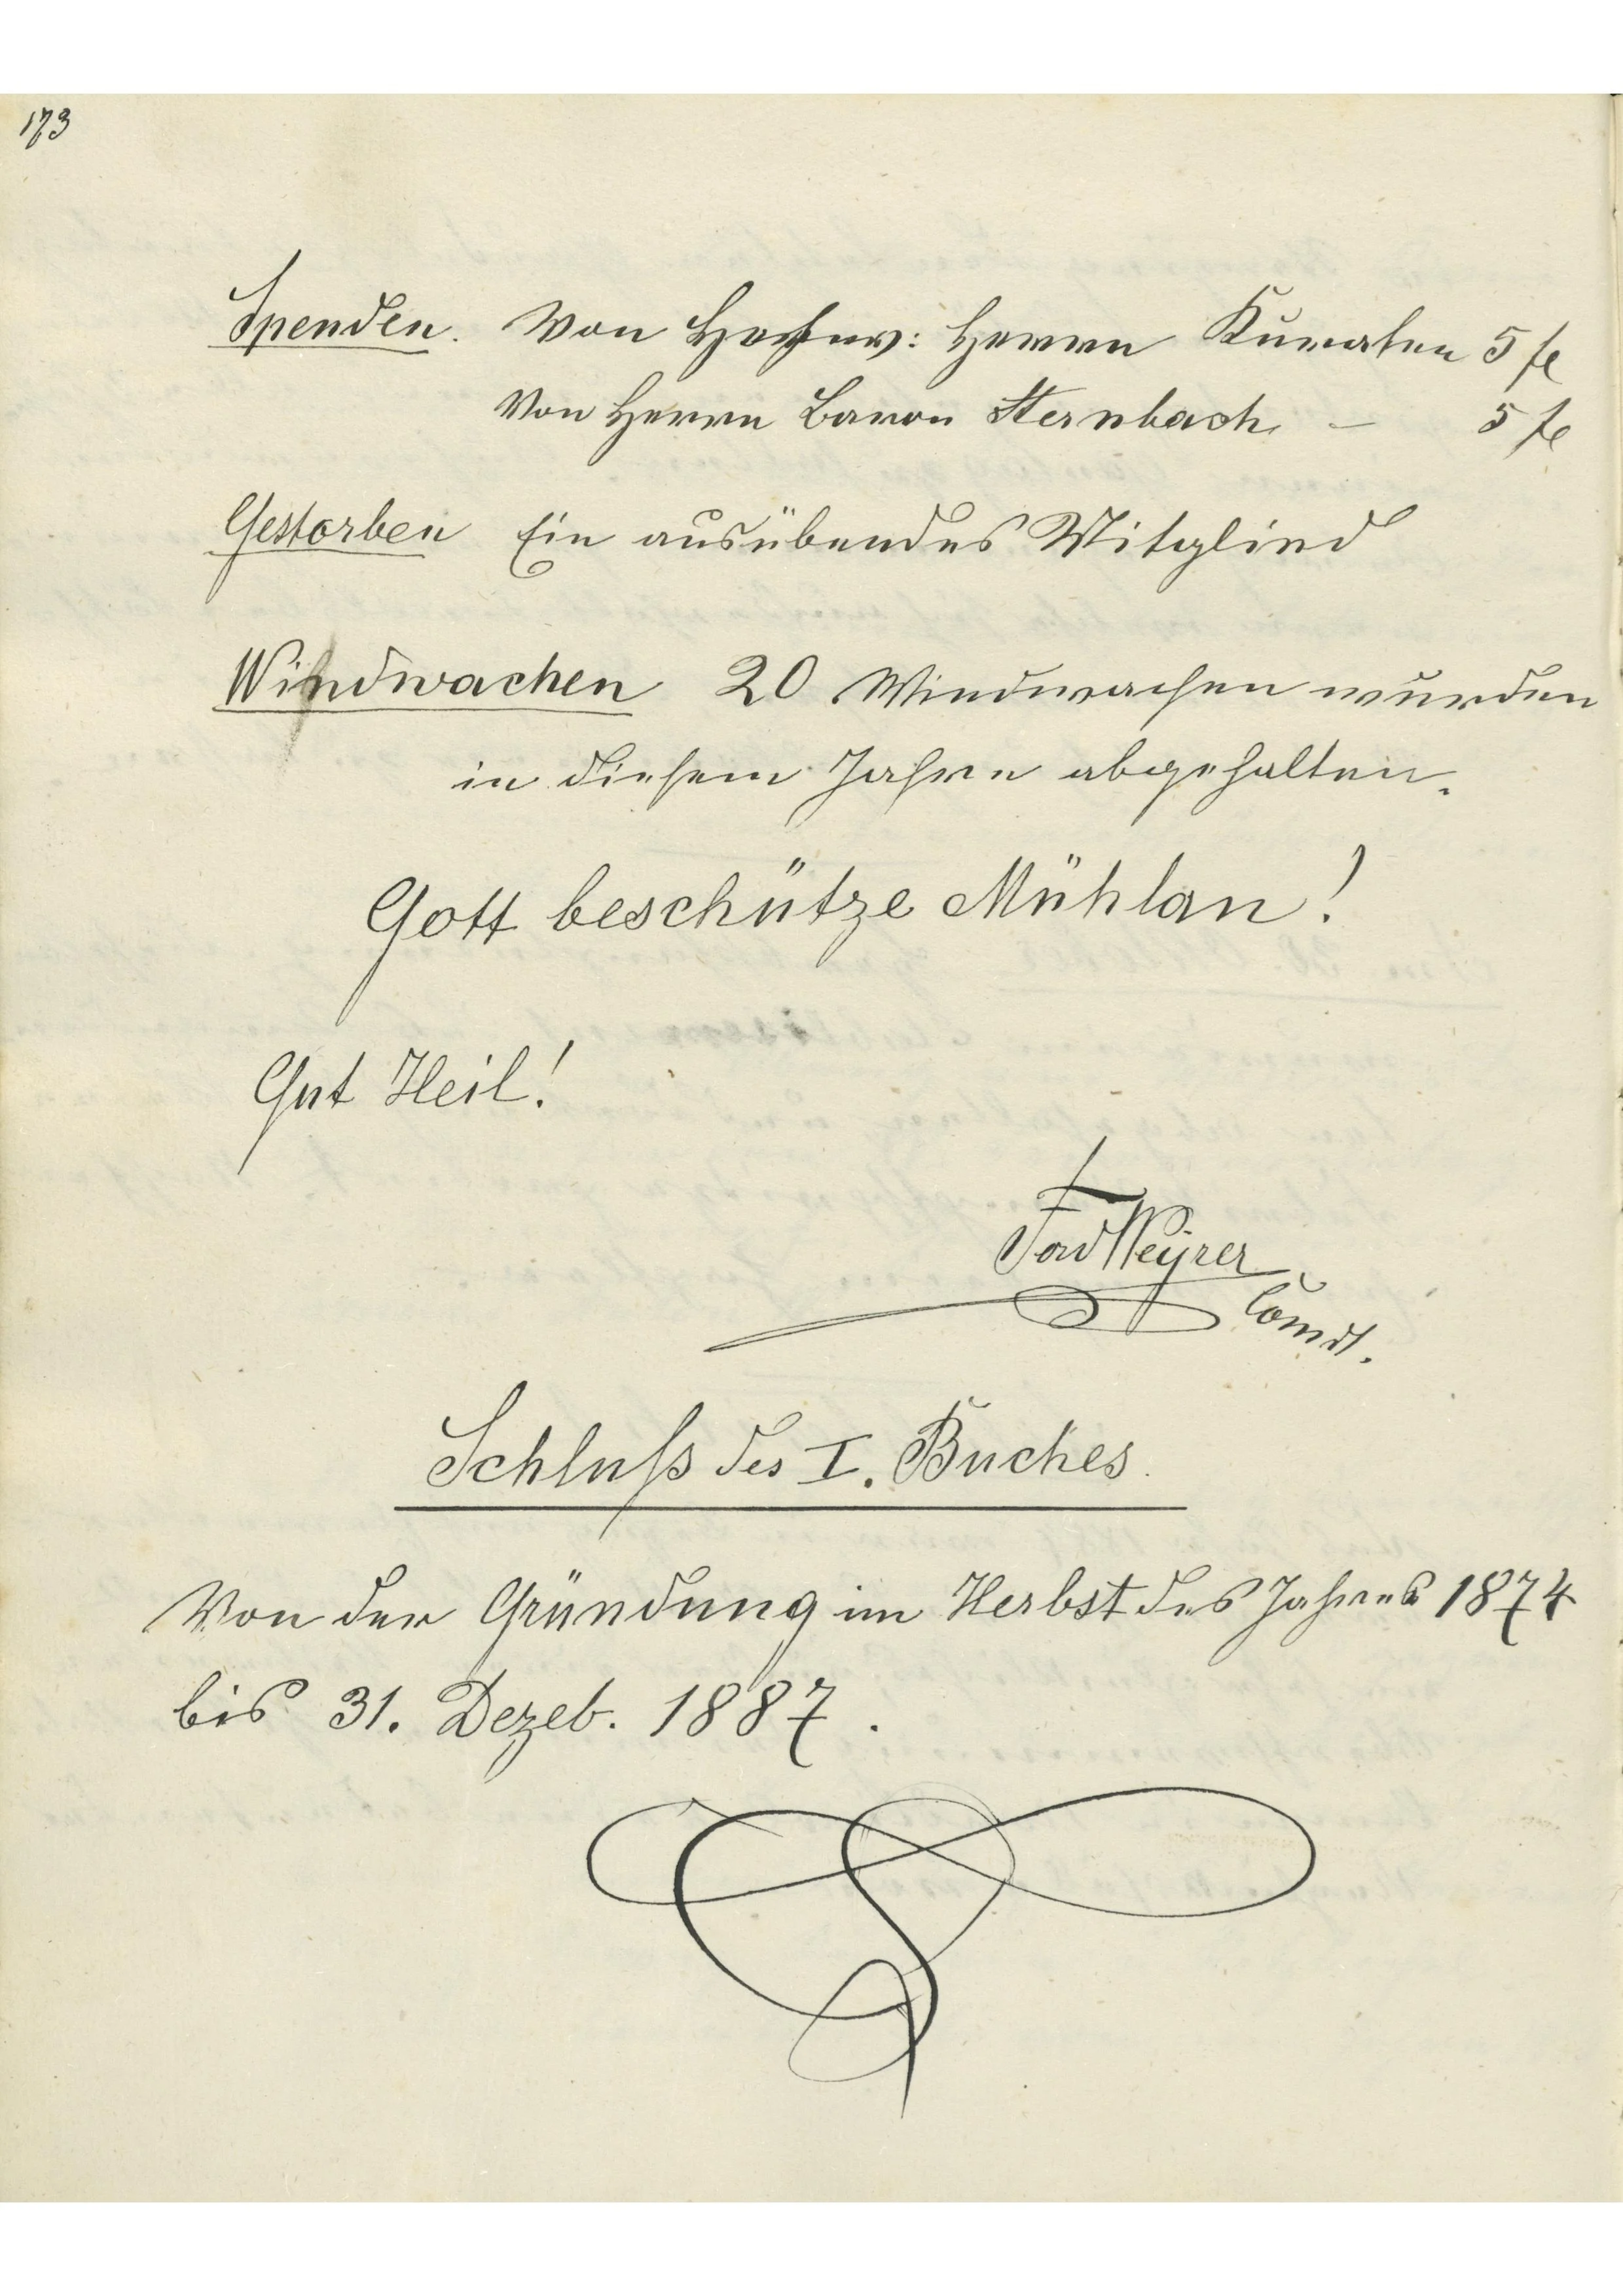 173
Spenden. Von Hochw: Herrn Kuraten 5 fl
Von Herrn Baron Sternbach – 5 fl
Gestorben Ein ausübendes Mitglied
Windwachen 20 Windwachen wurden
in diesem Jahre abgehalten.
Gott beschütze Mühlau!
Gut Heil!
Ferd Weyrer
Comdt.
Schluß des I. Buches.
Von der Gründung im Herbst des Jahres 1874
bis 31. Dezeb. 1887.